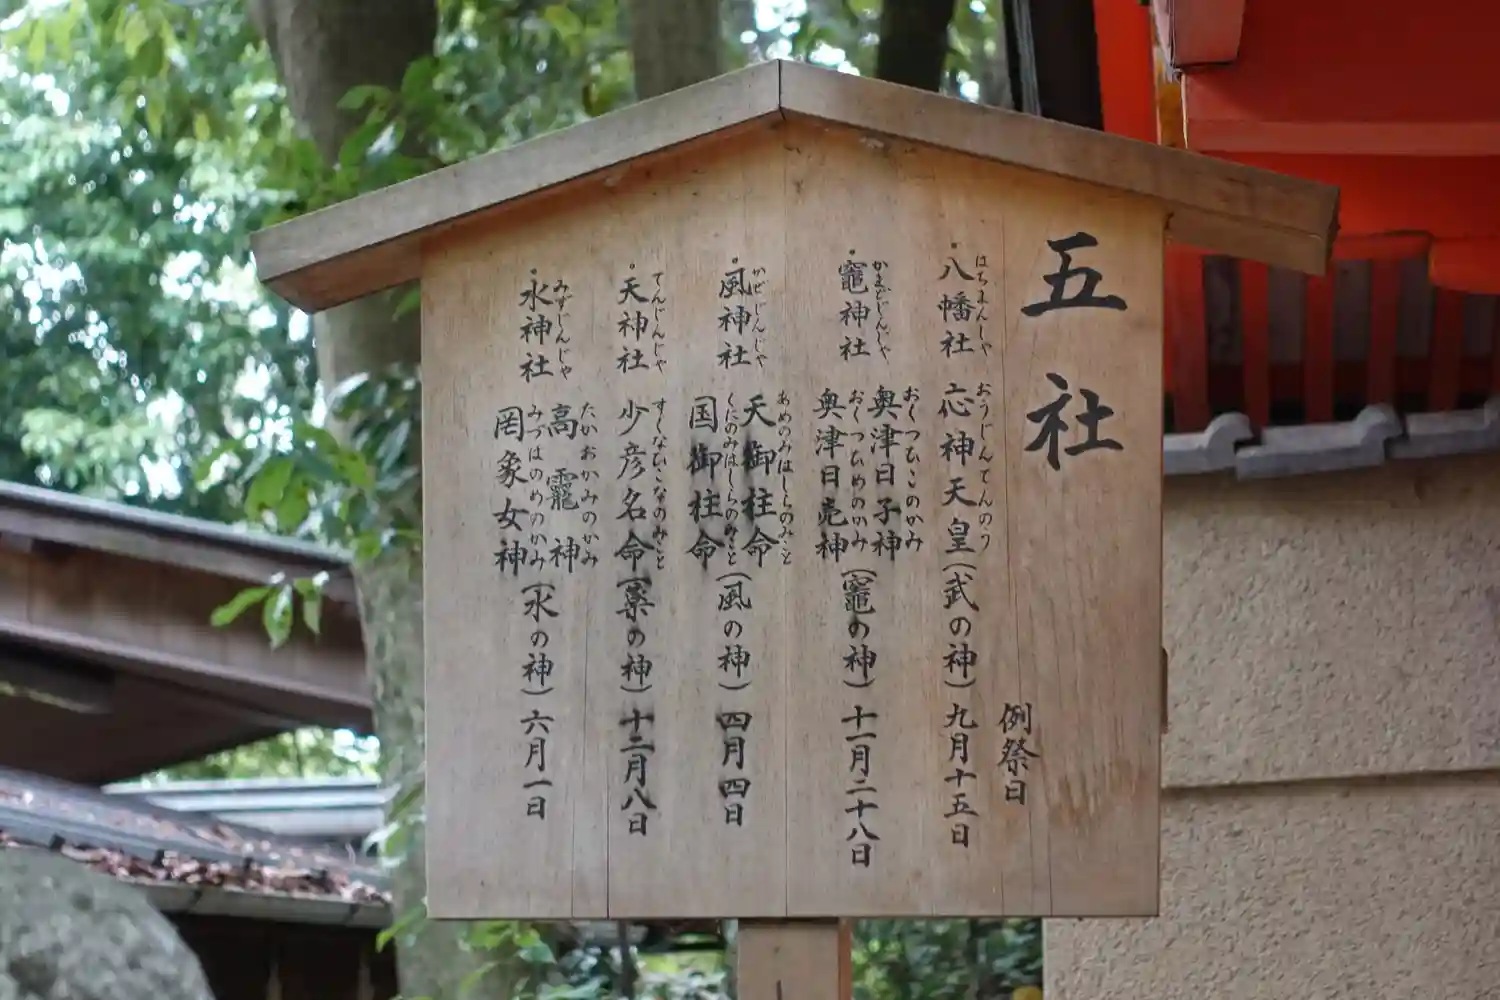 五社
例祭日
・八幡社 応神天皇(武の神)九月十五日
はちまんしゃ おうじんてんのう
・竈神社 奥津日子神 奥津日売神(竈の神)十一月二十八日
かまどじんじゃ おくつひこのかみ おくつひめのかみ
・風神社 天御柱命 国御柱命(風の神)四月四日
かぜじんじゃ あめのみはしらのみこと くにのみはしらのみこと
・天神社 少彦名命(薬の神)十二月八日
てんじんじゃ すくなひこなのみこと
・水神社 高龗神 罔象女神(水の神)六月一日
みずじんじゃ たかおかみのかみ みづはのめのかみ